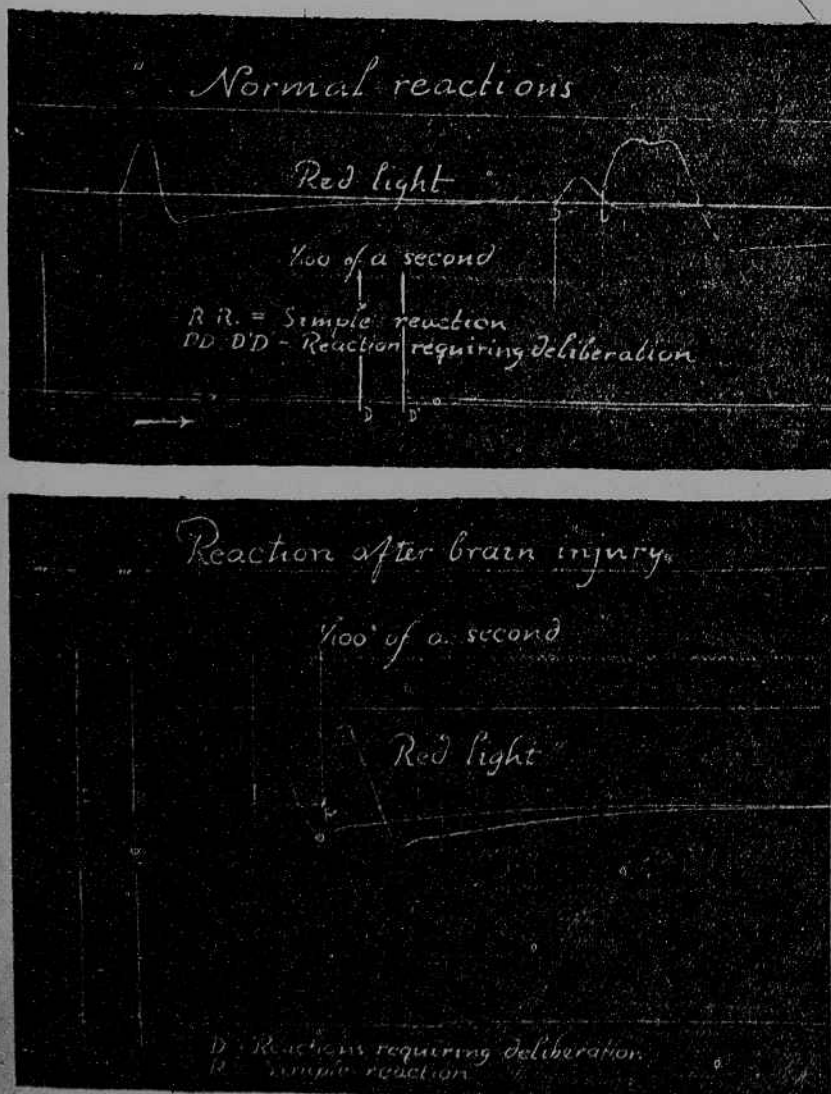 Normal reactions
Red light
1/100 of a second
R R. = Simple reaction
DD D'D - Reaction requiring deliberation
D D'
Reaction after brain injury.
1/100 of a second
Red light
D - Reactions requiring deliberation
R - Simple reaction